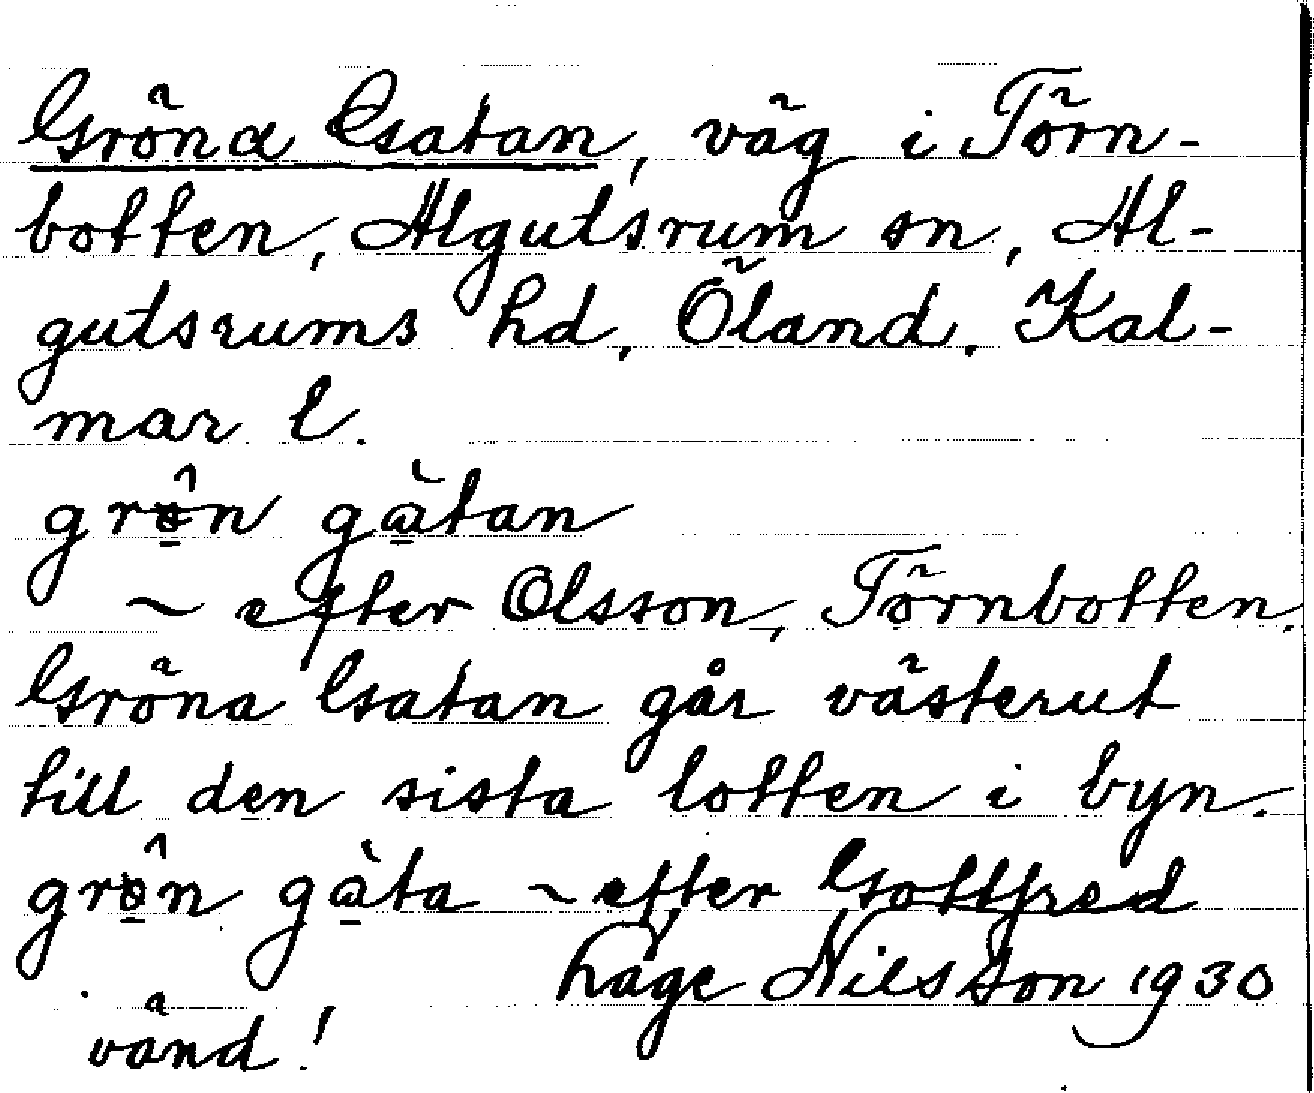 Gröna Gatan, väg i Törn-
botten, Algutsrum sn, Al-
gutsrums hd, Öland. Kal-
mar l.
grø̂n gàtan
~ efter Olsson, Törnbotten.
Gröna Gatan går västerut
till den sista lotten i byn.
grø̂n gàta ~ efter Gottfred
håge Nilsson 1930
vänd!